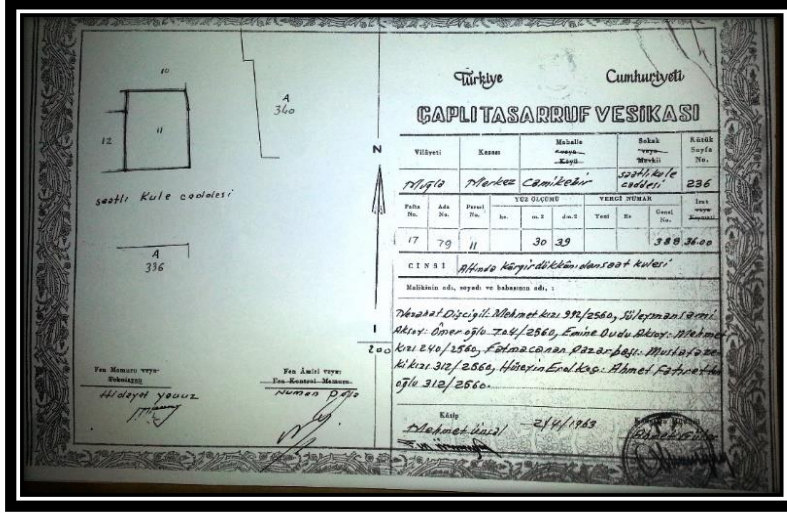 10
A
340
12
11
saatli Kule caddesi
A
336
N
1
200
Fen Memuru veya
Hidayet Yavuz
Fen Âmiri veya
Fen Kontrol Memuru
Numan
Türkiye Cumhuriyeti
ÇAPLI TASARRUF VESİKASI
Vilâyeti
Kazası
Mahalle
veya
Köyü
Sokak
veya
Mevkii
Kütük
Sayfa
No.
Muğla
Merkez
Camikebir
saatli kule
caddesi
236
Pafta
No.
Ada
No.
Parsel
No.
YÜZ ÖLÇÜMÜ
VERGİ NUMAR
İrat
veya
ha.
m.2
dm.2
Yeni
Genel
No.
17
79
11
30
39
388
36.00
CİNSİ
Altında Kârgir dükkânı olan saat kulesi
Malikinin adı, soyadı ve babasının adı, :
Nezahat Dişçigil: Mehmet kızı 992/2560, Süleyman sami
Aksoy: Ömer oğlu 704/2560, Emine Dudu Aksoy: Mehmet
kızı 240/2560, Fatmacanan Pazarbaşı: Mustafa ze-
ki kızı 312/2560, Hüseyin Erol Koç: Ahmet
oğlu 312/2560.
Kâtip
Mehmet Ünsal
2/4/1963